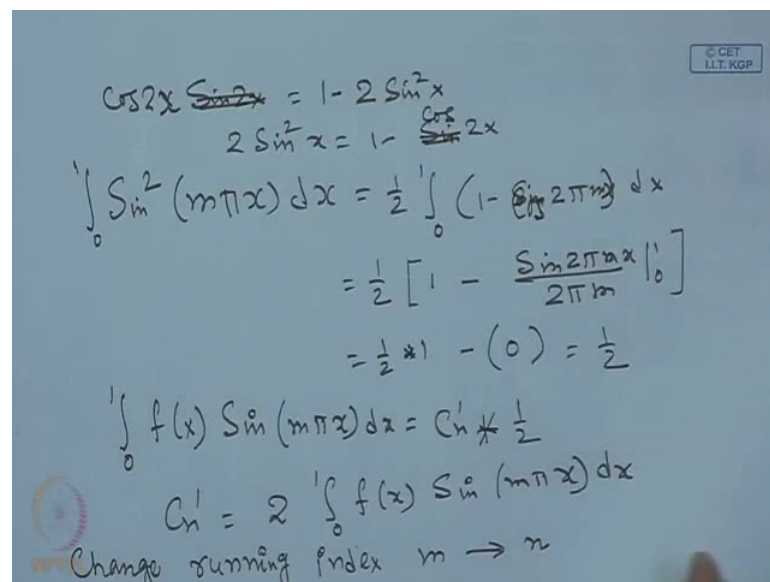 © CET
I.I.T. KGP
Cos2x Sin2x = 1 - 2 Sin²x
2 Sin²x = 1 - cos Sin 2x
∫₀¹ Sin² (mπx) dx = 1/2 ∫₀¹ (1 - 2πm) dx
= 1/2 [1 - Sin2πmx / 2πm |₀¹]
= 1/2 * 1 - (0) = 1/2
∫₀¹ f(x) Sin (mπx) dx = Cn' * 1/2
Cn' = 2 ∫₀¹ f(x) Sin (mπx) dx
Change running index m → n